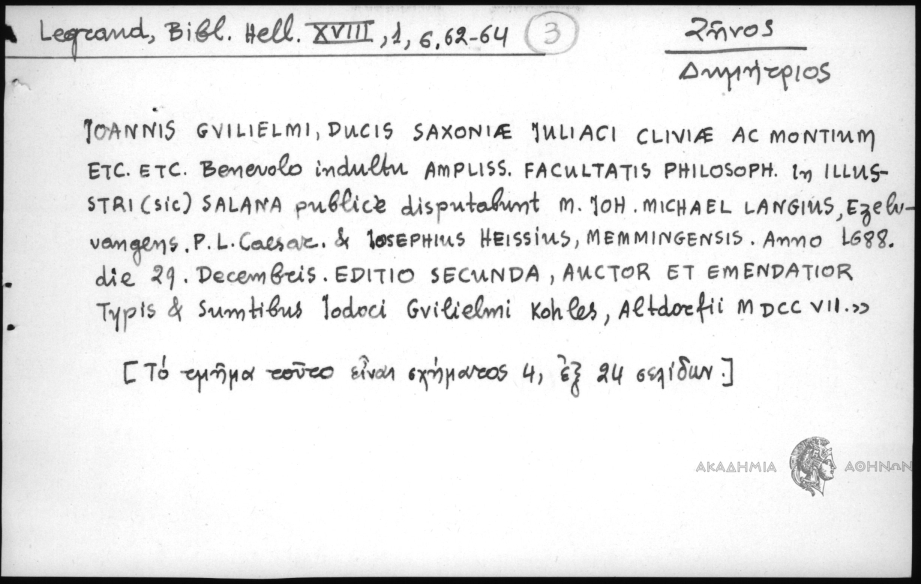 Legrand, Bibl. Hell. XVIII, 1, σ. 62-64 (3)
Ζῆνος
Δημήτριος
JOANNIS GVILIELMI, DUCIS SAXONIÆ JULIACI CLIVIÆ AC MONTIUM
ETC. ETC. Benevolo indultu AMPLISS. FACULTATIS PHILOSOPH. In ILLUS-
STRI (sic) SALANA publice disputabunt M. JOH. MICHAEL LANGIUS, Ezelu-
vangens. P. L. Caesar. & JOSEPHIUS HEISSIUS, MEMMINGENSIS. Anno 1688.
die 29. Decembris. EDITIO SECUNDA, AUCTOR ET EMENDATIOR
Typis & Sumtibus Jodoci Gvilielmi Kohles, Altdorfii MDCC VII.»
[Τό τμῆμα τοῦτο εἶναι σχήματος 4, ἐξ 24 σελίδων.]
ΑΚΑΔΗΜΙΑ ΑΘΗΝΩΝ